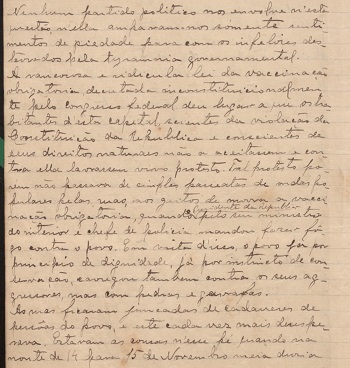 Nenhum partido politico nos envolve n'esta
questão, nella amparam-nos sómente senti-
mentos de piedade para com os infelizes des-
terrados pela tyrannia governamental.
A rancorosa e ridicula lei da vaccinação
obrigatoria decretada inconstitucionalmen-
te pelo congresso federal deu lugar a que os ha-
bitantes d'esta capital, scientes da violação da
Constituição da Republica e conscientes de
seus direitos naturaes não a aceitassem e con-
tra ella lavrassem vivo protesto. Tal protesto po-
rém não passava de simples passeatas de ondas po-
pulares pelas ruas, aos gritos de morra a vacci-
nação obrigatoria, quando o presidente da republica pelo seu ministro
do interior e chefe de policia mandou fazer fo-
go contra o povo. Em vista disso, o povo já por
principio de dignidade, já por instincto de con-
servação, carregou tambem contra os seus ag-
gressores, mas com pedras e garrafas.
As ruas ficaram juncadas de cadaveres de
pessôas do povo, e este cada vez mais desespe-
rava. Estavam as cousas nesse pé quando na
noite de 14 para 15 de Novembro meia duzia